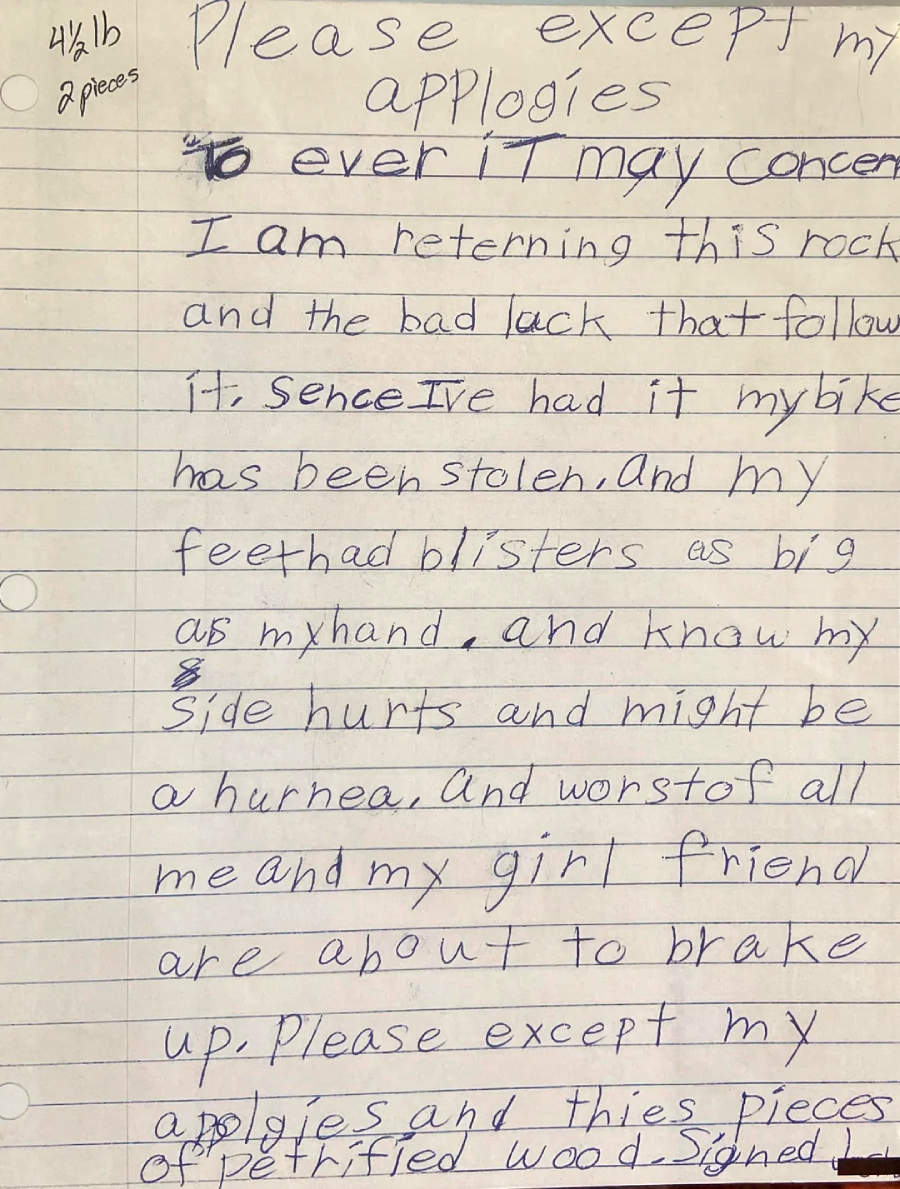 4½ lb
2 pieces
Please except my
applogies
To ever iT may concern
I am reterning this rock
and the bad lack that follow
it. Sence I've had it my bike
has been stolen. and my
feet had blisters as big
as my hand. and know my
side hurts and might be
a hurnea. and worst of all
me and my girl friend
are about to brake
up. Please except my
apolgies and thies pieces
of petrified wood. Signed